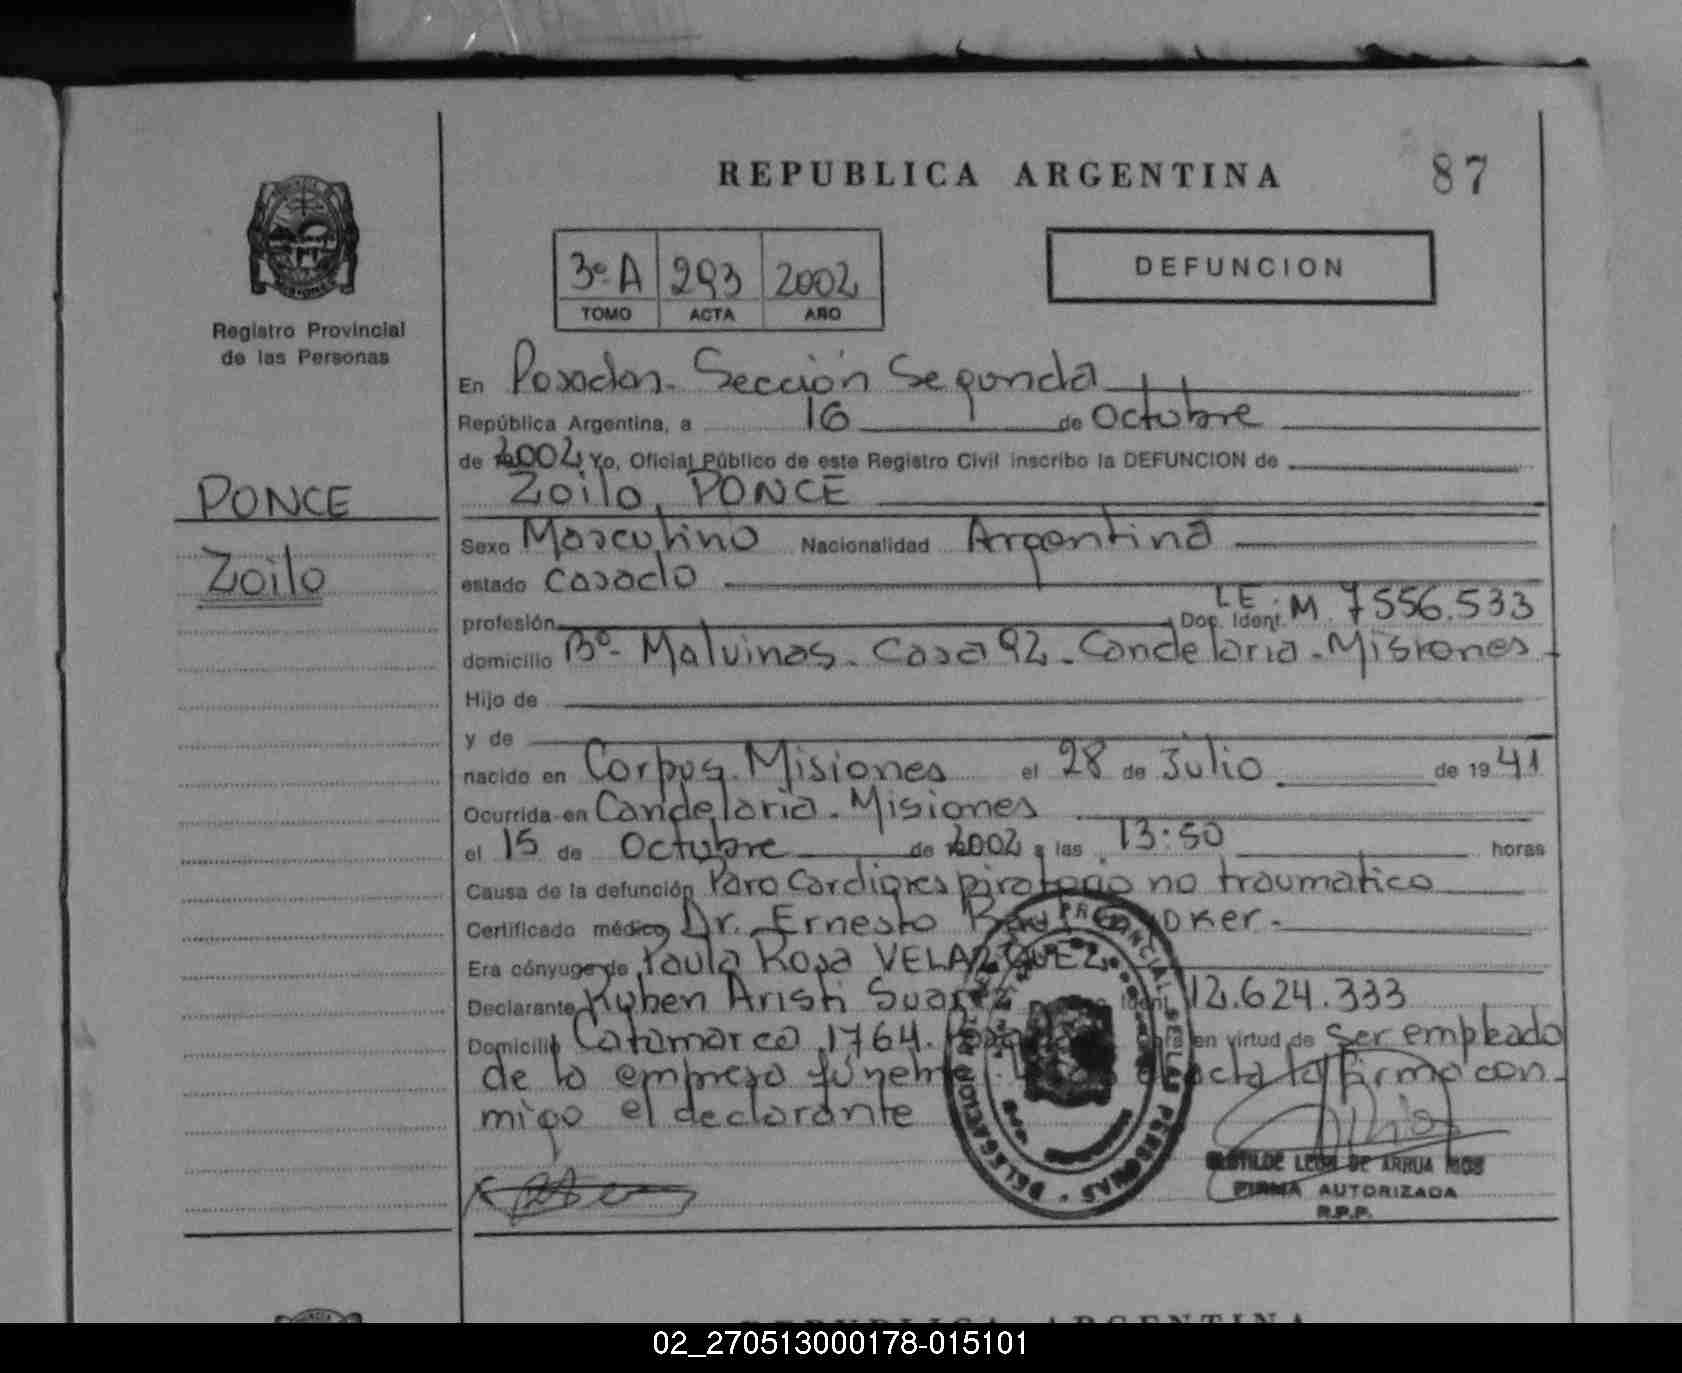 REPUBLICA ARGENTINA
87
3º A 293 2002
TOMO ACTA AÑO
DEFUNCION
Registro Provincial
de las Personas
PONCE
Zoilo
En Posadas. Sección Segunda
República Argentina, a 16 de Octubre
de 2002 Yo, Oficial Público de este Registro Civil inscribo la DEFUNCION de
Zoilo, PONCE
Sexo Masculino Nacionalidad Argentina
estado casado
profesión Doc. Ident. L.E. M. 7556.533
domicilio Bº- Malvinas. Casa 92. Candelaria - Misiones
Hijo de
y de
nacido en Corpus. Misiones el 28 de Julio de 1941
Ocurrida en Candelaria. Misiones
el 15 de Octubre de 2002 a las 13:50 horas
Causa de la defunción Paro Cardiorespiratorio no traumatico
Certificado médico Dr. Ernesto
Era cónyuge de Paula Rosa VELAZQUEZ
Declarante Ruben Aristi Suarez Ident. 12.624.333
Domicilio Catamarca 1764. en virtud de ser empleado
de la empresa fúnebre. acta la firma con-
migo el declarante
DELEGACION PROVINCIAL DE LAS PERSONAS
CLOTILDE LEON DE ARRUA RIOS
FIRMA AUTORIZADA
R.P.P.
REPUBLICA ARGENTINA
02_270513000178-015101